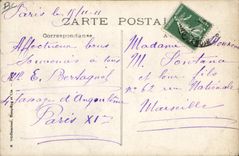 Paris le 15/11-11
CARTE POSTALE
Correspondance
Affectueux bons
Souvenirs à tous
E. Bertagnol
Passage d'Angoulême
Paris XIe
Madame
M. Fontana
et leur fils
No 62 rue Nationale
Marseille